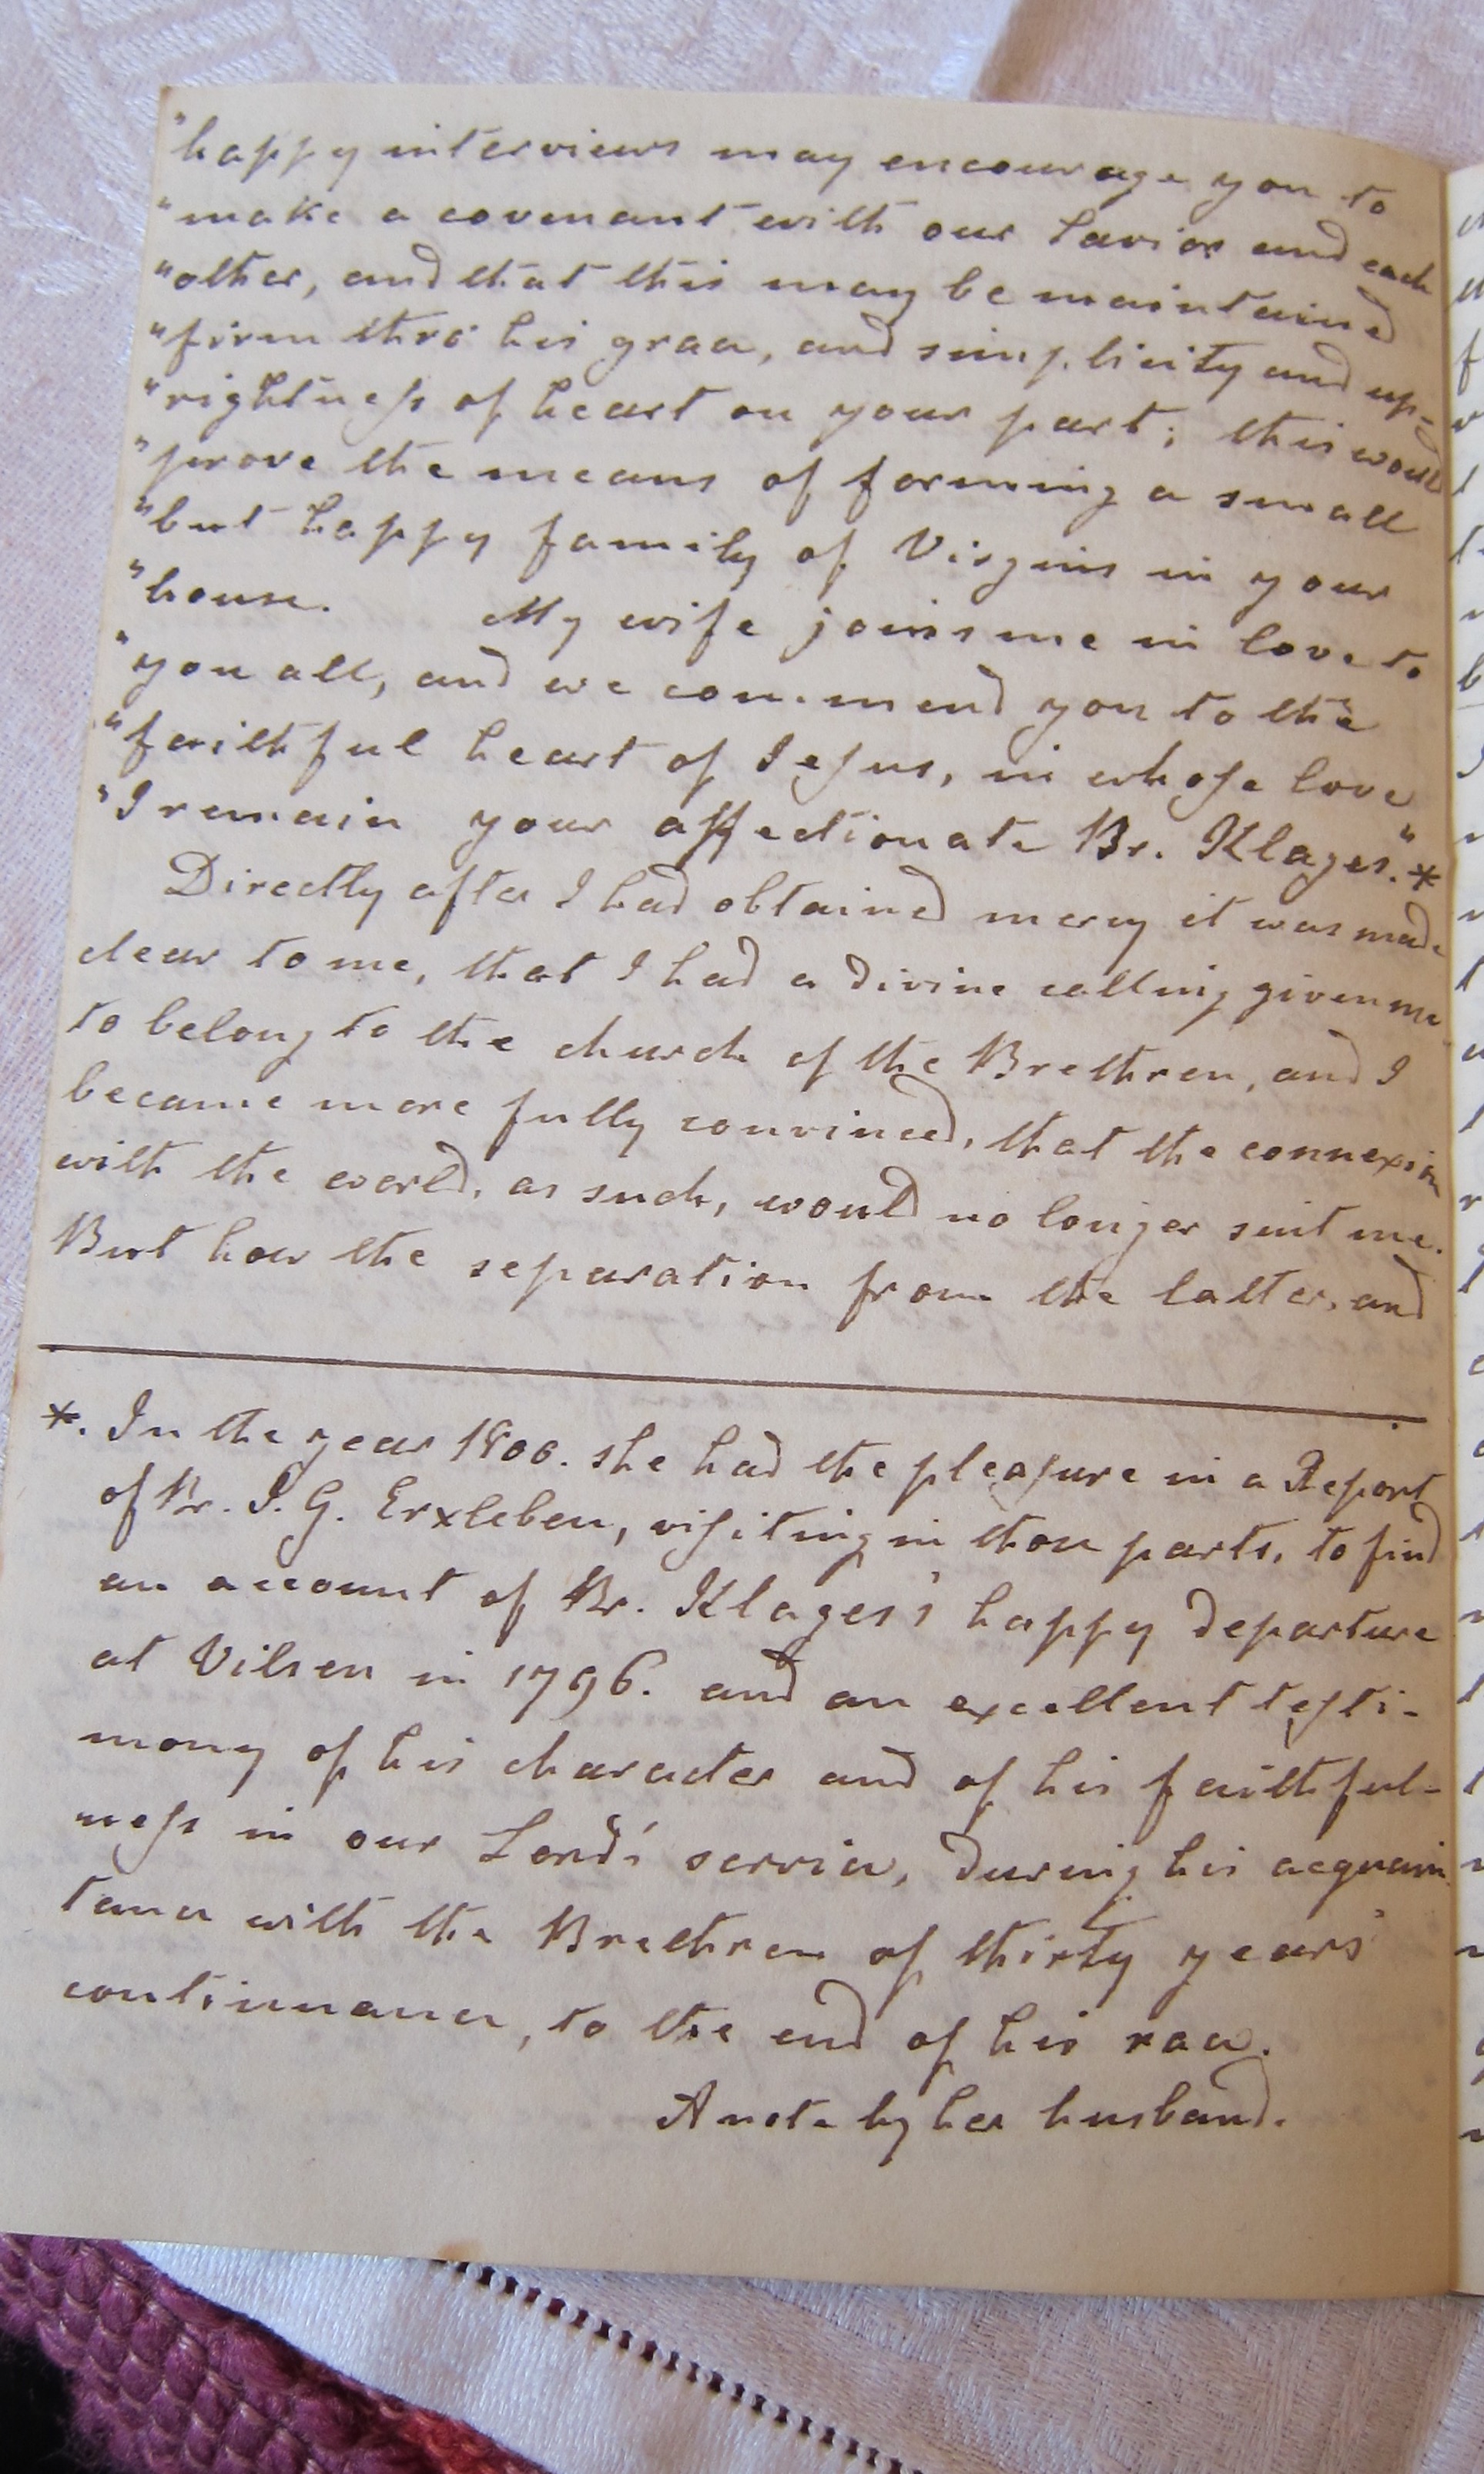 "happy interviews may encourage you to
"make a covenant with our Savior and each
"other, and that this may be maintained
"firm thro' his grace, and simplicity and up-
"rightneſs of heart on your part; this would
"prove the means of forming a small
"but happy family of Virgins in your
"house. My wife joins me in love to
"you all, and we commend you to the
"faithful heart of Jeſus, in whoſe love
"I remain your affectionate Br. Klages."*
Directly after I had obtained mercy it was made
clear to me, that I had a divine calling given me
to belong to the church of the Brethren, and I
became more fully convinced, that the connexion
with the world, as such, would no longer suit me.
But how the separation from the latter, and
*. In the year 1800. she had the pleaſure in a Report
of Br. I. G. Erxleben, viſiting in those parts, to find
an account of Br. Klages's happy departure
at Vilsen in 1796. and an excellent teſti-
mony of his character and of his faithful-
neſs in our Lord's service, during his acquain
tance with the Brethren of thirty years'
continuance, to the end of his race.
A note by her husband.